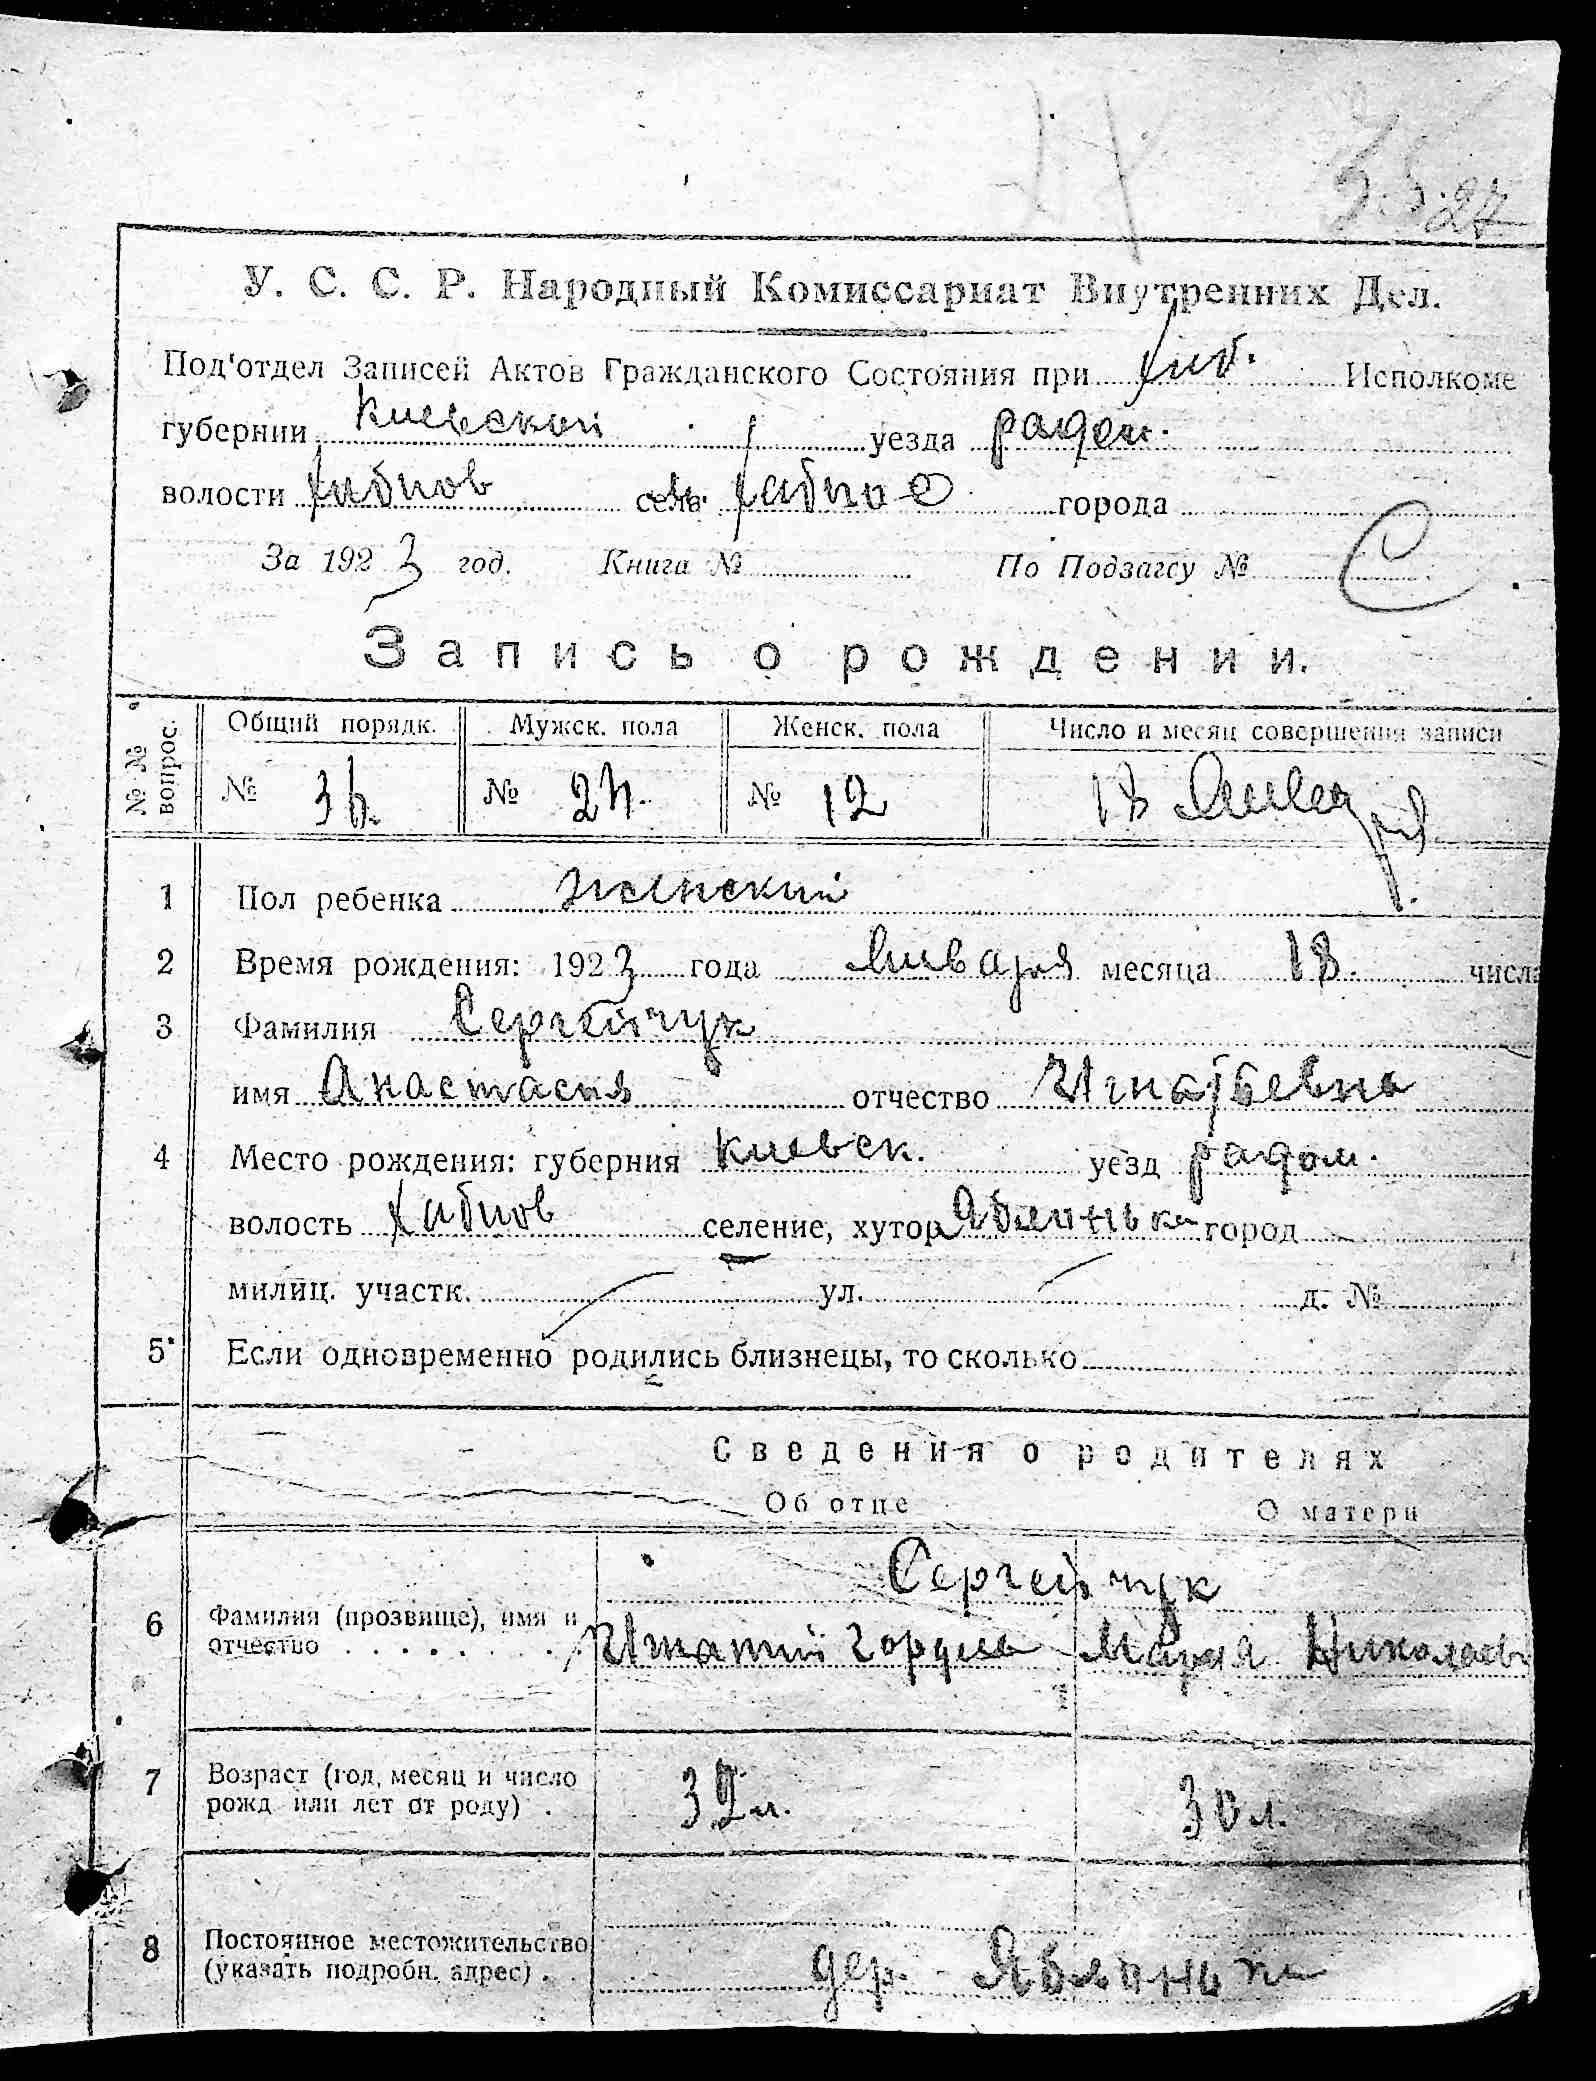 35 27
У. С. С. Р. Народный Комиссариат Внутренних Дел.
Под'отдел Записей Актов Гражданского Состояния при Хаб. Исполкоме
губернии Киевской уезда радом.
волости Хабнов села Хабно города
За 1923 год. Книга № По Подзагсу № С
Запись о рождении.
№ № вопрос. Общий порядк. Мужск. пола Женск. пола Число и месяц совершения записи
№ 36. № 24. № 12 18 Января
1 Пол ребенка женский
2 Время рождения: 1923 года Января месяца 18. числа
3 Фамилия Сергейчук
имя Анастасия отчество Игнатьевна
4 Место рождения: губерния Киевск. уезд радом.
волость Хабнов селение, хутор Яблонька город
милиц. участк. ул. д. №
5 Если одновременно родились близнецы, то сколько
Сведения о родителях
Об отце О матери
Сергейчук
6 Фамилия (прозвище), имя и
отчество Игнатий Гордеев Мария Николаев
7 Возраст (год, месяц и число
рожд или лет от роду) . 32 л. 30 л.
8 Постоянное местожительство
(указать подробн. адрес) . дер. Яблонька